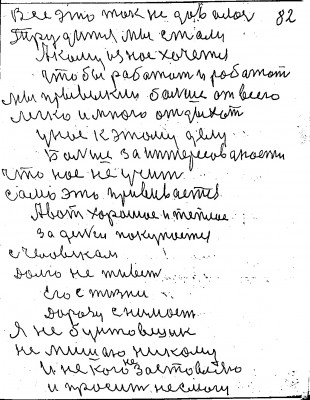 Все это так не до в алоя 82
Трудится мы стали
А кому из нас хочется
что бы работат и работат
мы привыкли больше от всего
легко и много отдыхат
у нас к этому делу
Больше заинтересованости
что нас не учит
само это прививается
А вот хорошое и теплое
за денги покупается
с человекам
долго не живет
его с жизни
дорогу снимает
Я не бунтовщик
не мишаю никому
И не кого не заставляю
и просит не смогу